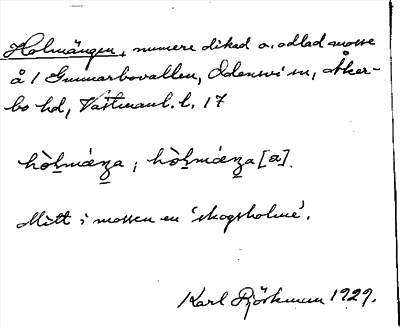 Holmängen, numera dikad o. odlad mosse
å 1 Gunnarbovallen, Odensvi sn, Åker-
bo hd, Västmanl. l. 17
Mitt i mossen en 'skogsholme'.
Karl Björkman 1929.